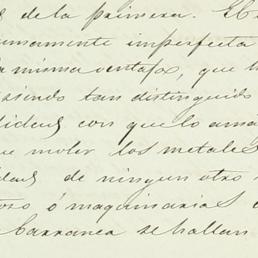 de la primera. El
sumamente imperfecta
la misma ventaja, que h
siendo tan distinguido
con que lo ama
moler los metales
de ningun otro
ó maquinarias
Carranca se hallan